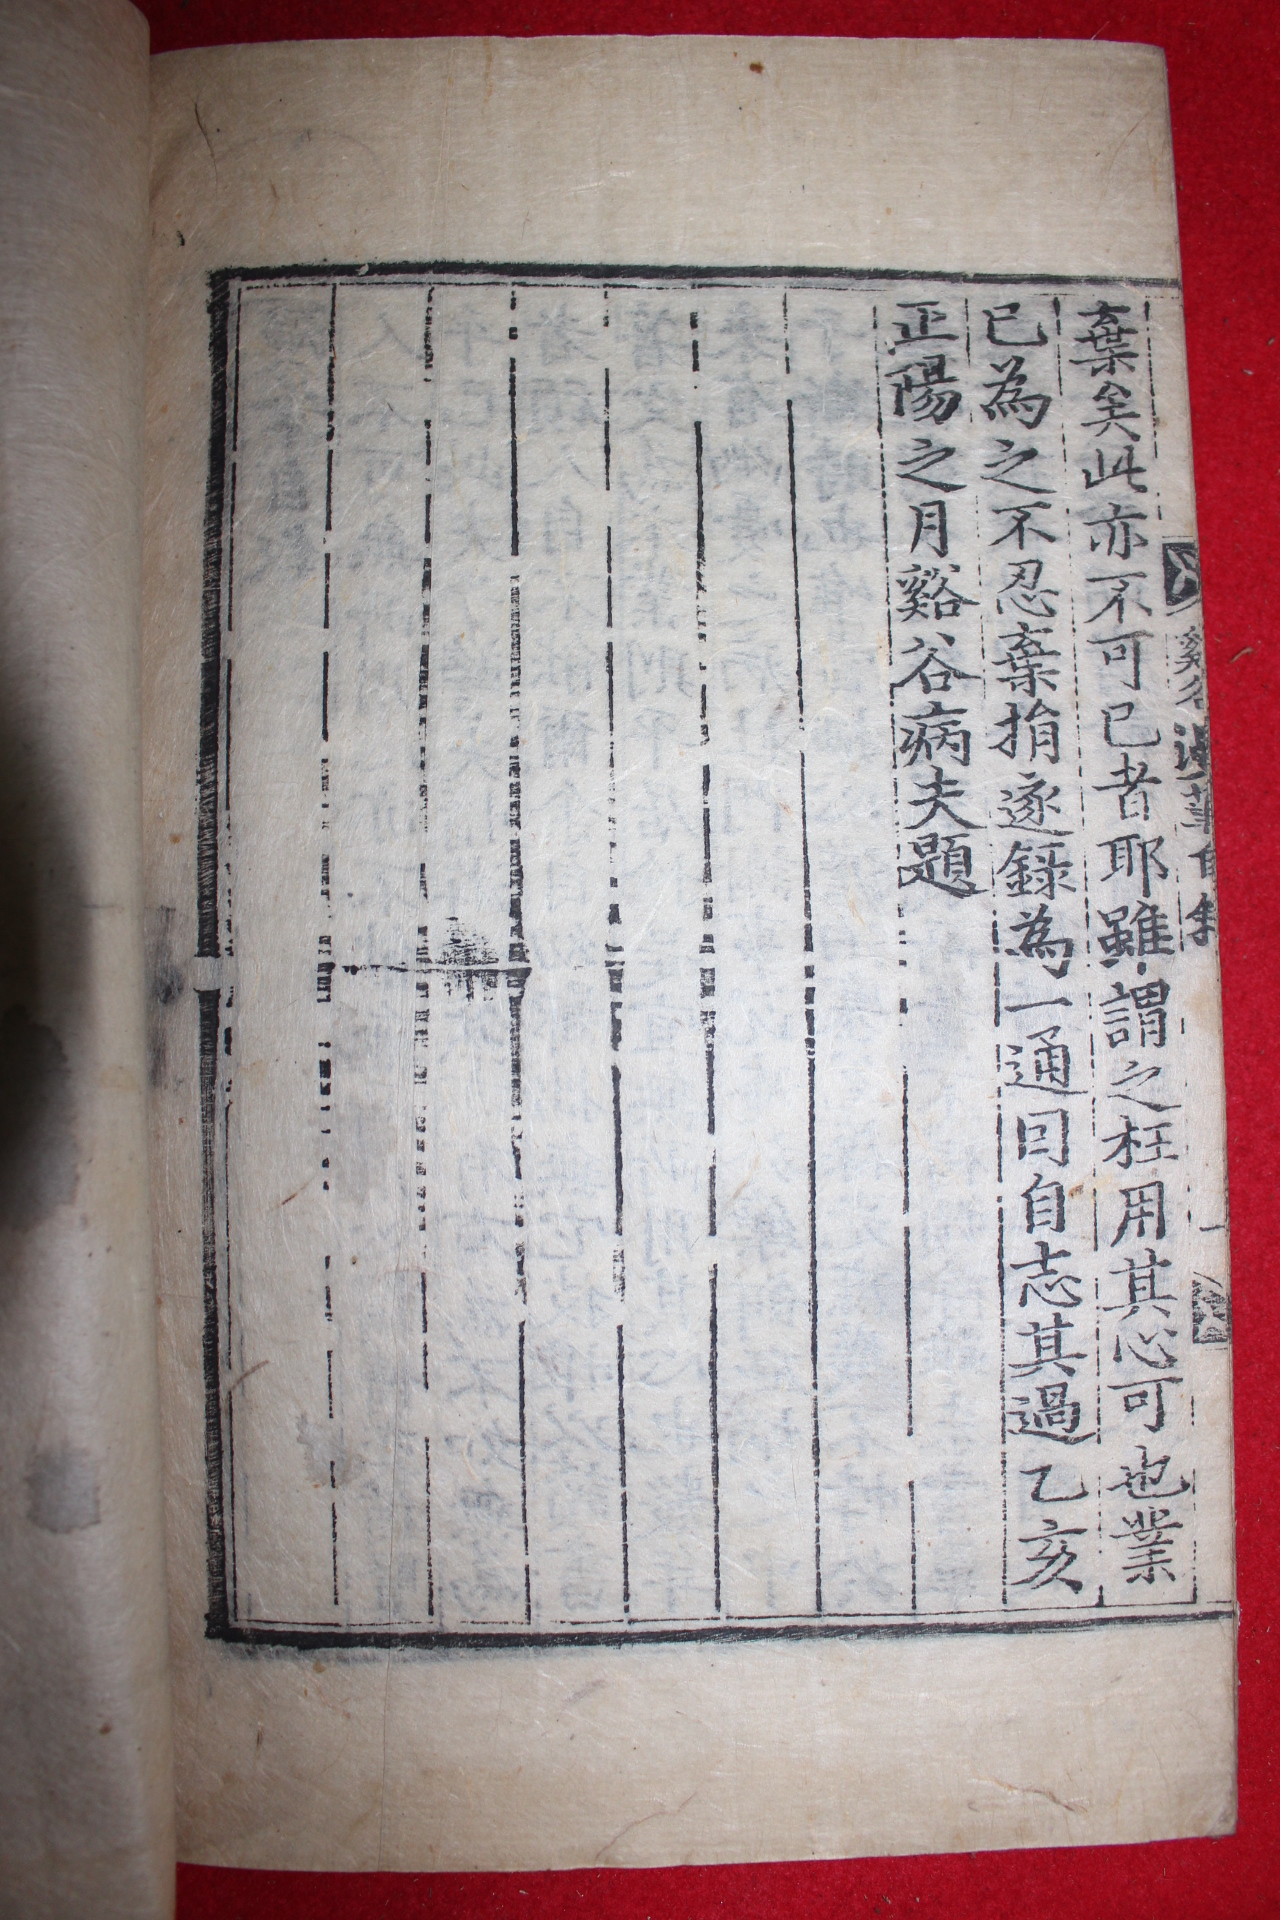 谿谷漫筆自敘
一
棄矣此亦不可已者耶雖謂之枉用其心可也業
已為之不忍棄捐逐錄為一通曰自志其過乙亥
正陽之月谿谷病夫題